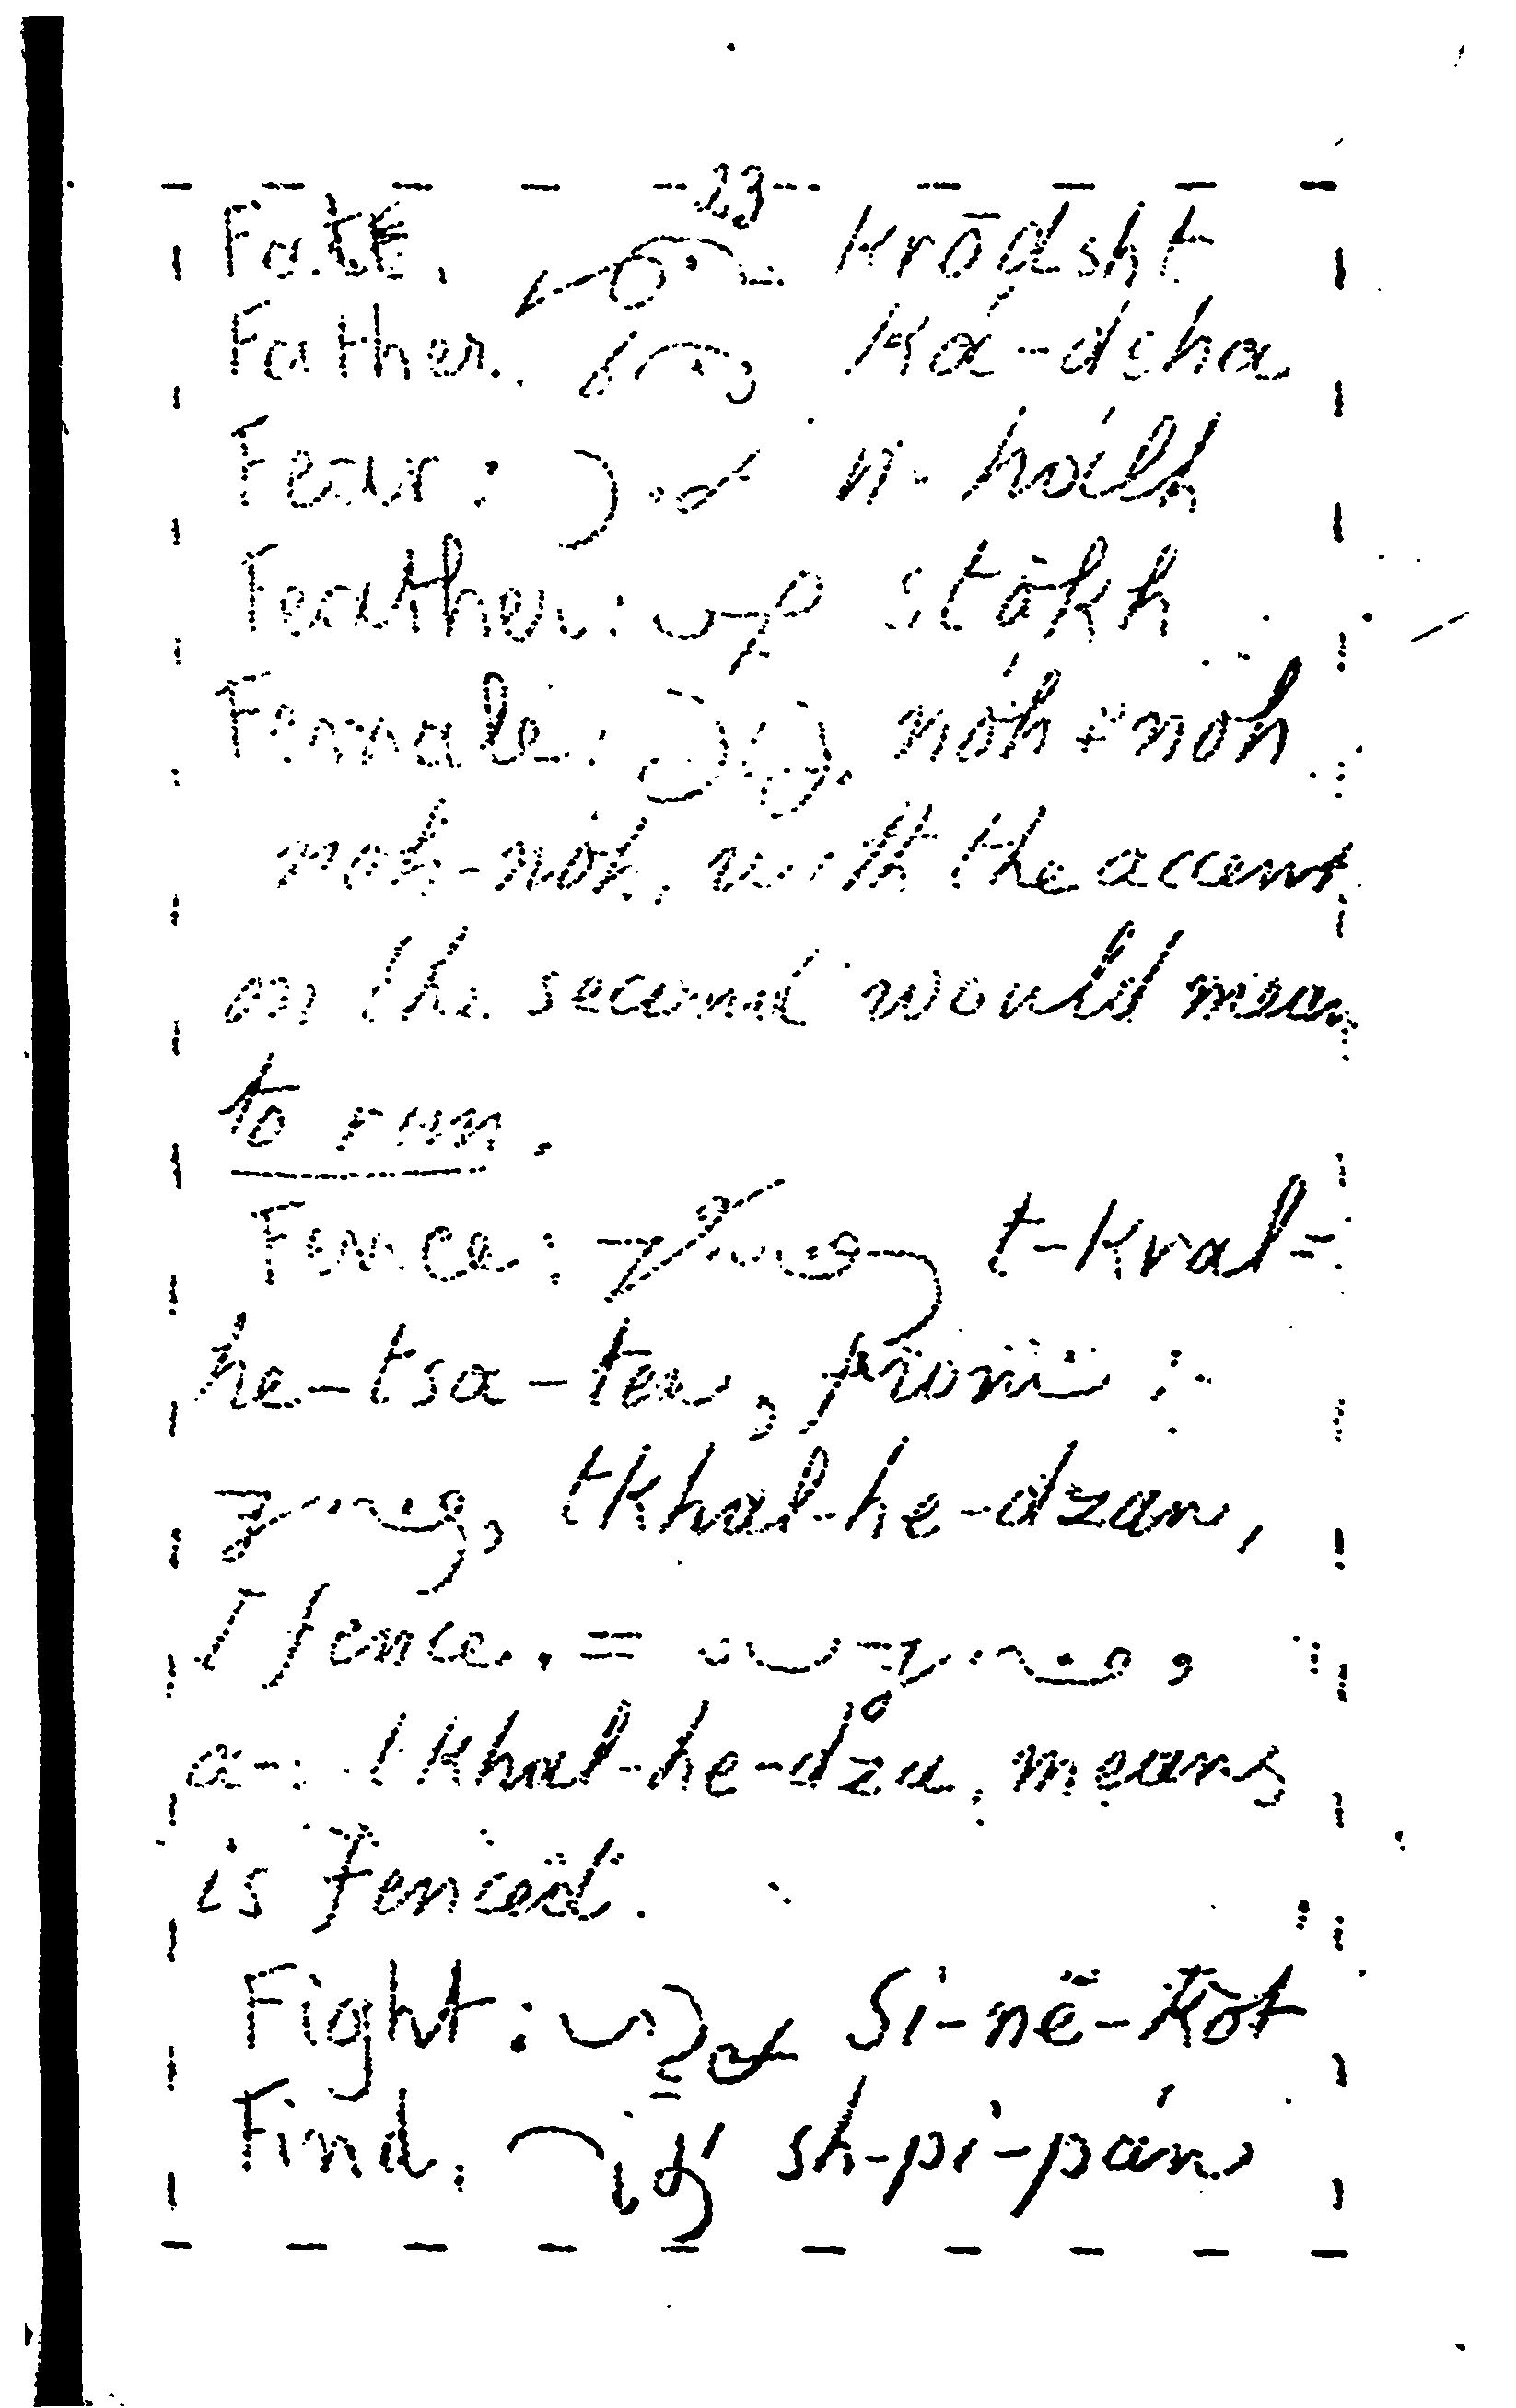 23
Fate. krōdsht
Father. Ká-dcha
Fear: n-hálh
Feather: stōkh
Female: nóh + noh
noh-nóh, with the accent
on the second would mean
to run.
Fence: t-kral=
he-tsa-ten, from:
tkhal-he-dzan,
I fence. =
a- tkhal-he-dza, means
is fenced.
Fight: Si-nē-kōt
Find. sh-pi-pán